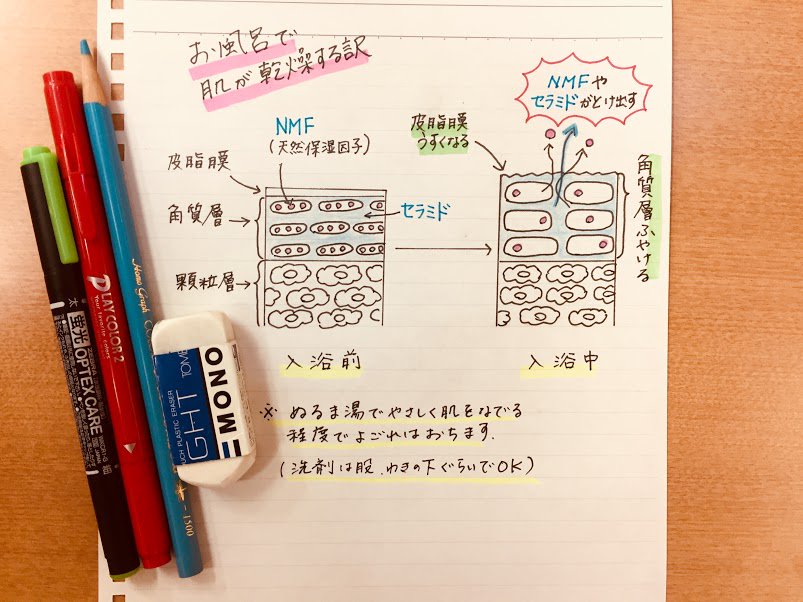 お風呂で
肌が乾燥する訳
NMF
(天然保湿因子)
皮脂膜
角質層
セラミド
顆粒層
入浴前
NMFや
セラミドがとけ出す
皮脂膜
うすくなる
角質層ふやける
入浴中
※ ぬるま湯でやさしく肌をなでる
程度でよごれはおちます.
(洗剤は股、わきの下ぐらいでOK)
太 蛍光 OPTEX CARE
PLAY COLOR 2
Your favorite colors
Homo Graph
1500
MONO
TOMB
GHT
UCH PLASTIC ERASER